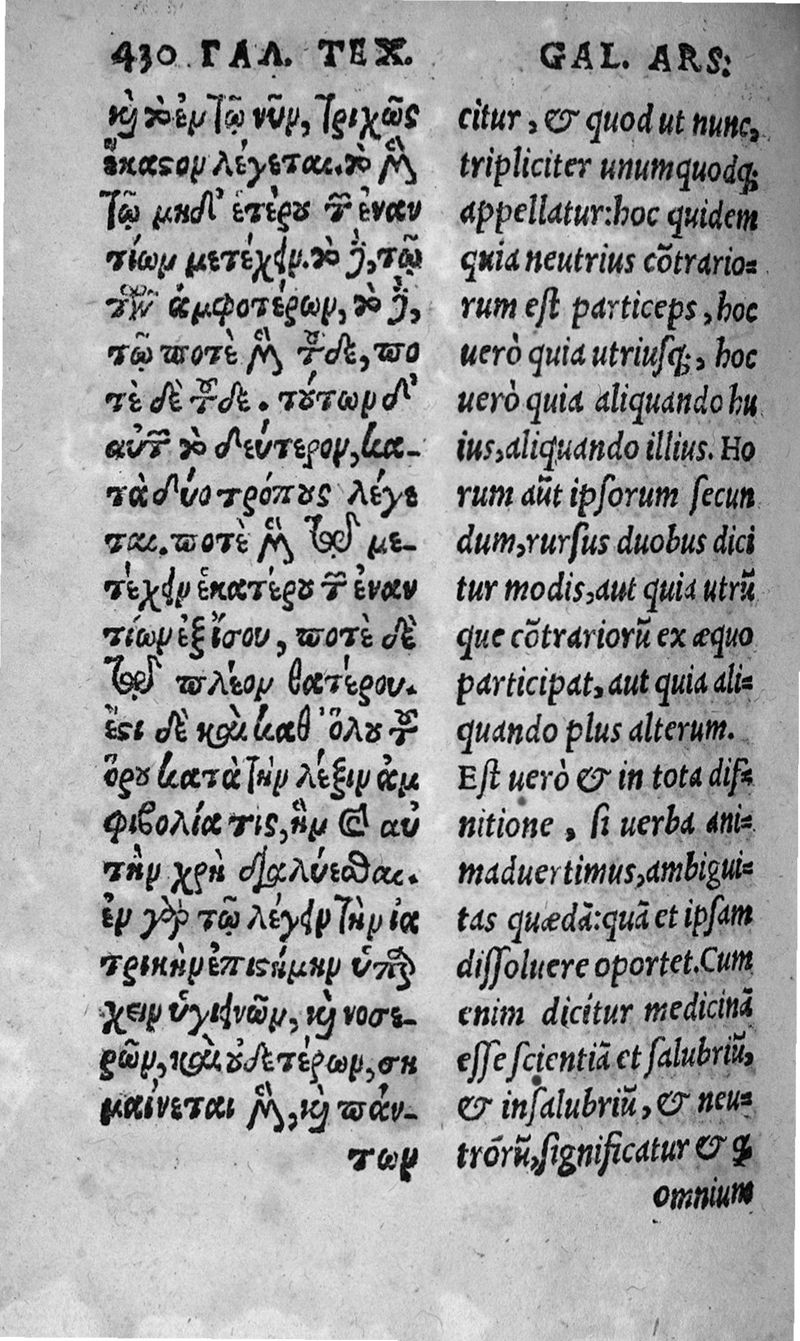 430 ΓΑΛ. ΤΕΧ.
GAL. ARS:
καὶ τὸ ἐν τῷ νῦν, τριχῶς
ἕκαστον λέγεται. τὸ μὲν
τῷ μηδ' ἑτέρου τῶν ἐναν
τίων μετέχειν. τὸ δὲ, τῷ
τῶν ἀμφοτέρων, τὸ δὲ,
τῷ ποτὲ μὲν τοῦδε, πο
τὲ δὲ τοῦδε. τούτων δ'
αὐτῶν τὸ δεύτερον, κα-
τὰ δύο τρόπους λέγε
ται. ποτὲ μὲν τῷ με-
τέχειν ἑκατέρου τῶν ἐναν
τίων ἐξ ἴσου, ποτὲ δὲ
τῷ πλέον θατέρου.
ἔστι δὲ καὶ καθ' ὅλου τοῦ
ὅρου κατὰ τὴν λέξιν ἀμ
φιβολία τις, ἣν καὶ αὐ
τὴν χρὴ διαλύεσθαι.
ἐν γὰρ τῷ λέγειν τὴν ἰα
τρικὴν ἐπιστήμην ὑπάρ
χειν ὑγιεινῶν, καὶ νοσε-
ρῶν, καὶ οὐδετέρων, ση
μαίνεται μὲν, καὶ πάν-
των
citur, & quod ut nunc,
tripliciter unumquodq;
appellatur: hoc quidem
quia neutrius cõtrario=
rum est particeps, hoc
uerò quia utriusq;, hoc
uerò quia aliquando hu
ius, aliquando illius. Ho
rum aũt ipsorum secun
dum, rursus duobus dici
tur modis, aut quia utrũ
que cõtrariorũ ex æquo
participat, aut quia ali=
quando plus alterum.
Est uerò & in tota difi=
nitione, si uerba ani=
maduertimus, ambigui=
tas quædã: quã et ipsam
dissoluere oportet. Cum
enim dicitur medicinã
esse scientiã et salubriũ,
& insalubriũ, & neu=
trõrũ, significatur & ꝙ
omnium